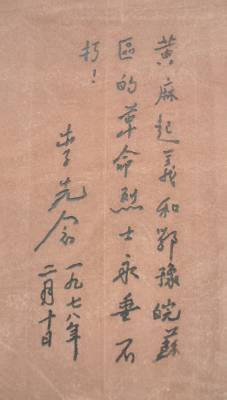 黄麻起義和鄂豫皖蘇
區的革命烈士永垂不
朽！
李先念
一九七八年
二月十日